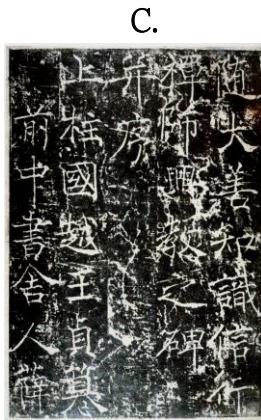 C.
隨大善知識信行
禪師興教之碑
并序
上柱國越王貞
前中書舍人薛